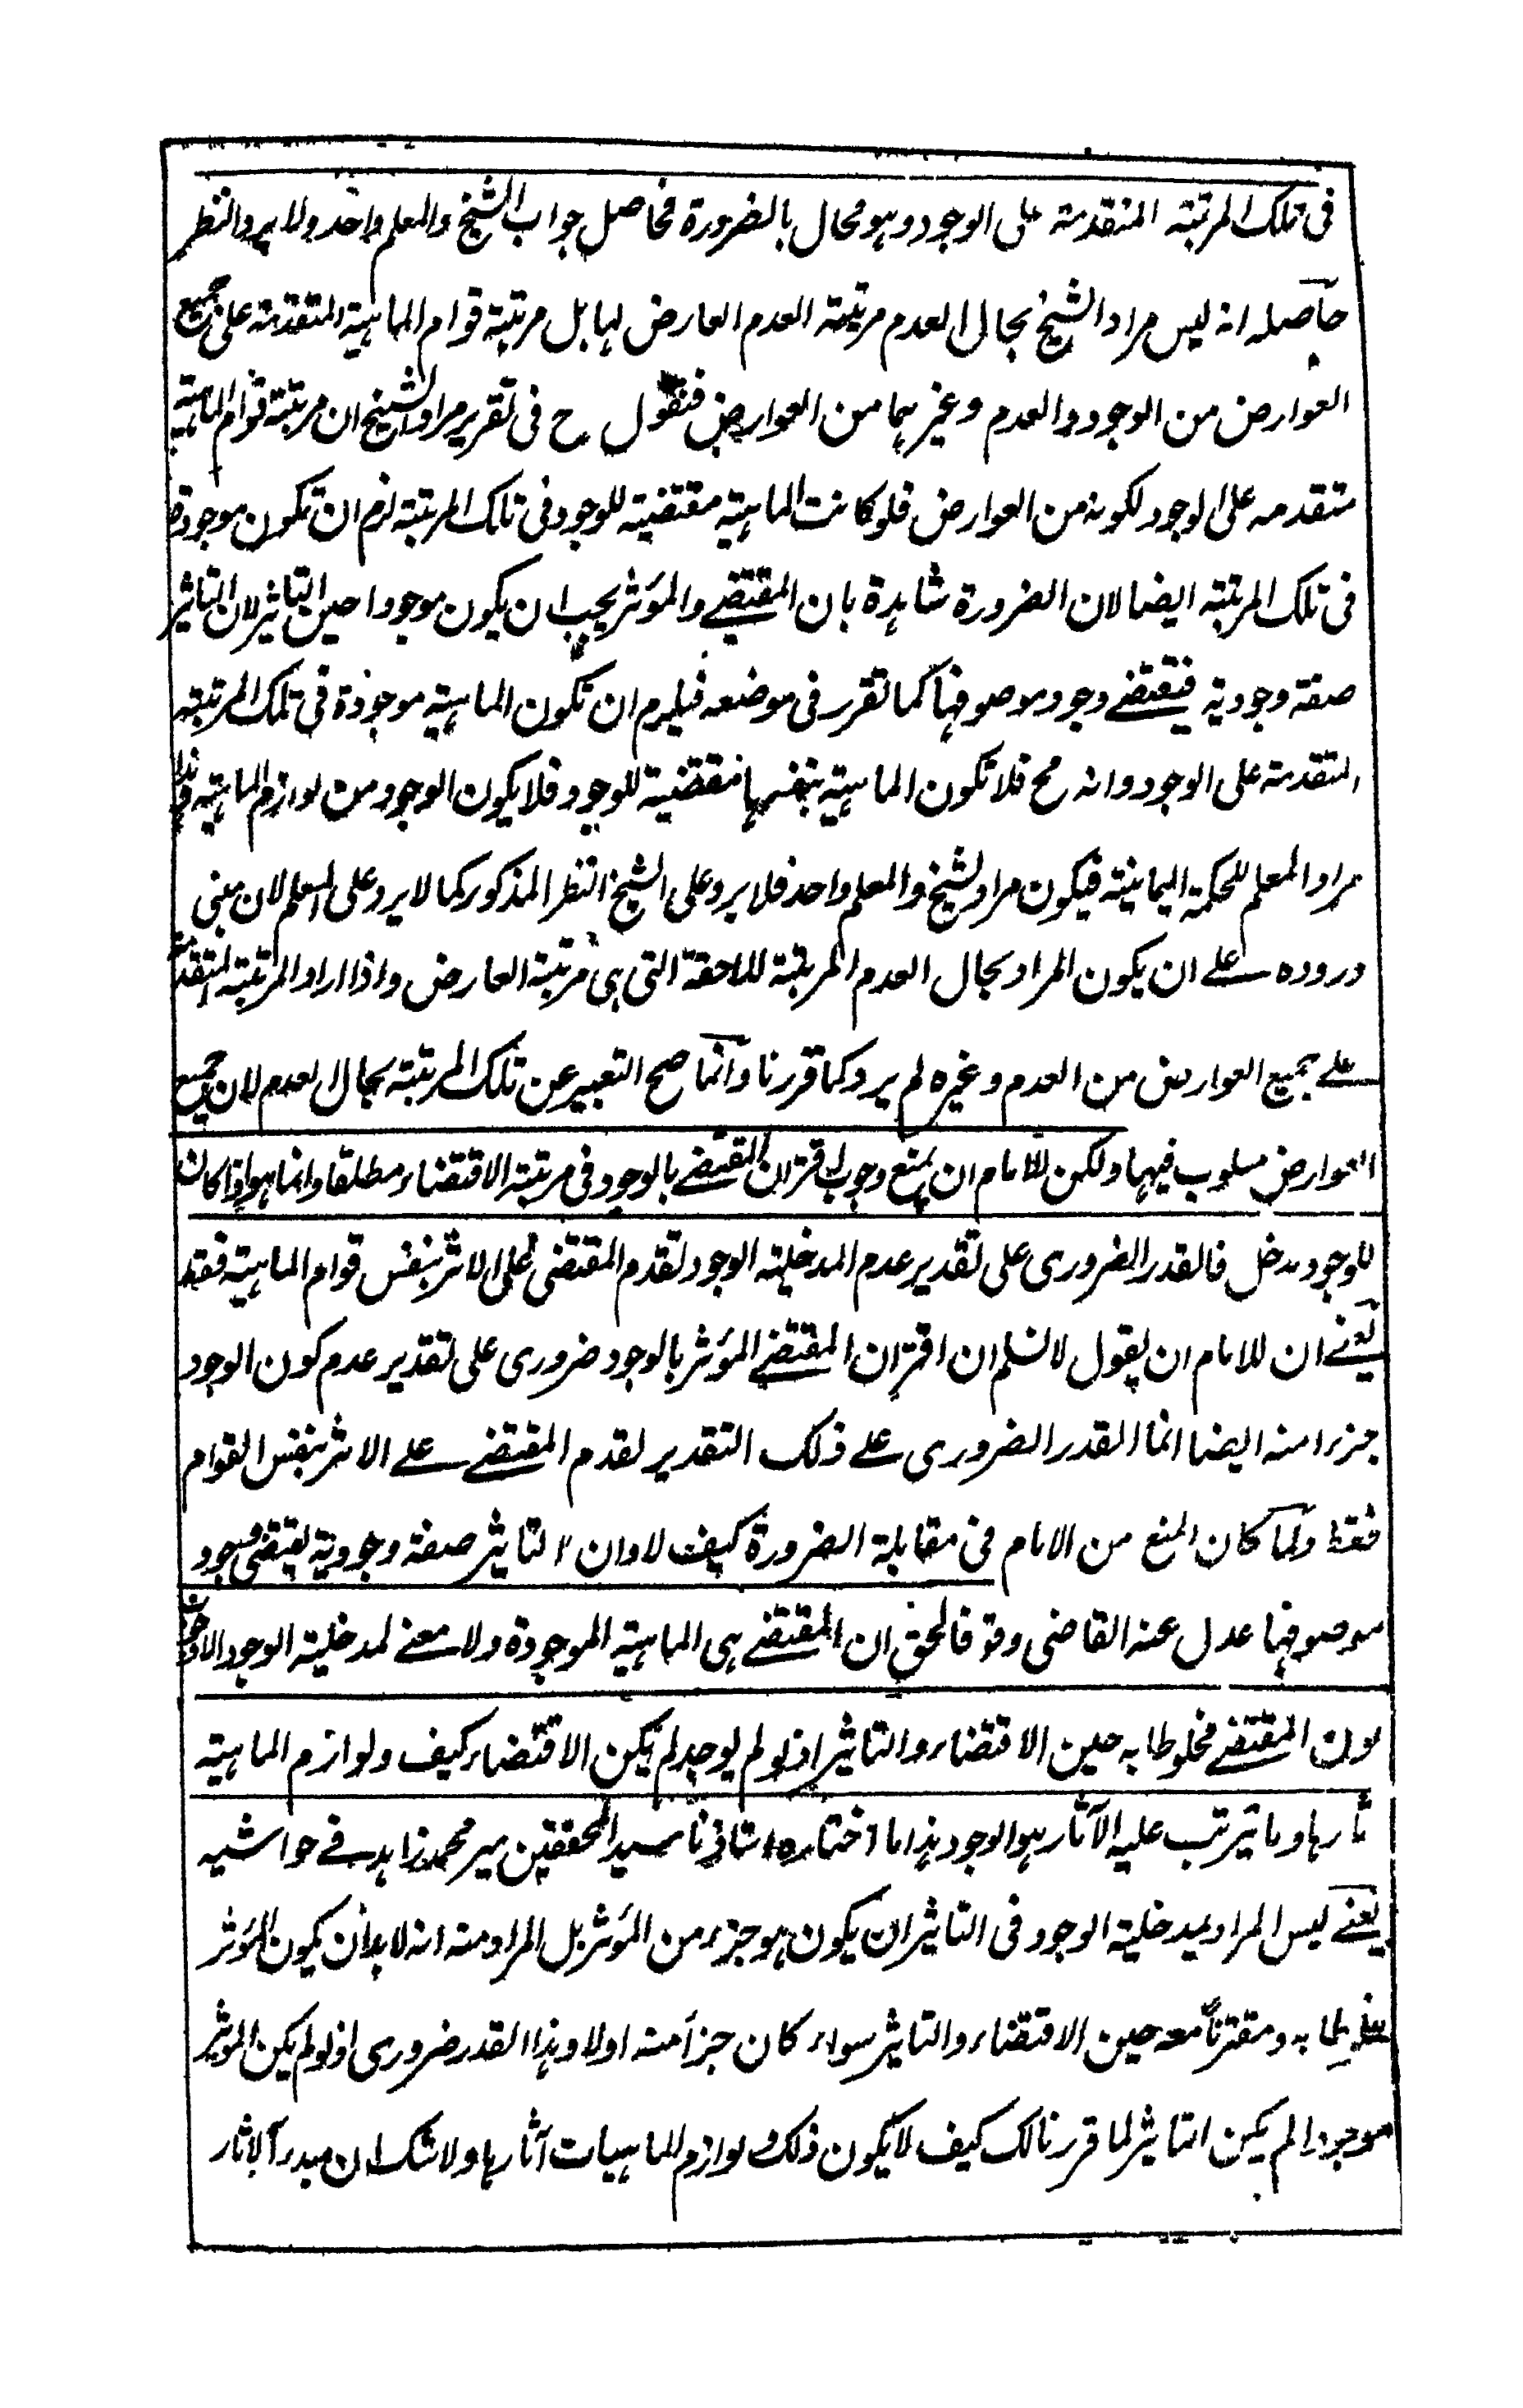 فى تلك المرتبة المتقدمة على الوجود وهو محال بالضرورة فحاصل جواب الشيخ والمعلم واحد ولا يرد النظر
حاصله انه ليس مراد الشيخ بحال العدم مرتبة العدم العارض لها بل مرتبة قوام الماهية المتقدمة على جميع
العوارض من الوجود والعدم وغيرهما من العوارض فنقول ح فى تقرير مراد الشيخ ان مرتبة قوام الماهية
متقدمه على الوجود لكونه من العوارض فلو كانت الماهية مقتضية للوجود فى تلك المرتبة لزم ان تكون موجودة
فى تلك المرتبة ايضا لان الضرورة شاهدة بان المقتضے والمؤثر يجب ان يكون موجودا حين التاثير لان التاثير
صفة وجودية فيقتضے وجود موصوفها كما تقرر فى موضعه فيلزم ان تكون الماهية موجودة فى تلك المرتبة
المتقدمة على الوجود وانه مح فلا تكون الماهية بنفسها مقتضية للوجود فلا يكون الوجود من لوازم الماهية وهذا
مراد المعلم للحكمة اليمانية فيكون مراد الشيخ والمعلم واحد فلا يرد على الشيخ النظر المذكور كما لا يرد على المعلم لان مبنى
وروده علے ان يكون المراد بحال العدم المرتبة اللاحقة التى هى مرتبة العارض واذا اراد المرتبة المتقدمة
علے جميع العوارض من العدم وغيره لم يرد كما قررنا وانما صح التعبير عن تلك المرتبة بحال العدم لان جميع
العوارض مسلوب فيها ولكن للامام ان يمنع وجوب اقتران المقتضے بالوجود فى مرتبة الاقتضاء مطلقا وانما هو اذا كان
للوجود مدخل فالقدر الضرورى على تقدير عدم المدخلية الوجود تقدم المقتضى على الاثر بنفس قوام الماهية فقط
يعنے ان للامام ان يقول لا نسلم ان اقتران المقتضے المؤثر بالوجود ضرورى على تقدير عدم كون الوجود
جزءا منه ايضا انما القدر الضرورى علے ذلك التقدير تقدم المقتضے علے الاثر بنفس القوام
فقط ولما كان المنع من الامام فى مقابلة الضرورة كيف لا وان التاثير صفة وجودية يقتضى وجود
موصوفها عدل عنه القاضى وقو فالحق ان المقتضے هى الماهية الموجودة ولا معنے لمدخلية الوجود الا
كون المقتضے مخلوطا به حين الاقتضاء والتاثير اذ لو لم يوجد لم يكن الاقتضاء كيف ولوازم الماهية
آثارها وما يترتب عليه الآثار هو الوجود هذا ما اختاره استاذنا سيد المحققين مير محمد زاهد فے حواشيه
يعنے ليس المراد بمدخلية الوجود فى التاثير ان يكون هو جزء من المؤثر بل المراد منه انه لا بد ان يكون المؤثر
مخلوطا به ومقترنا معه حين الاقتضاء والتاثير سواء كان جزأ منه اولا وهذا القدر ضرورى اذ لو لم يكن المؤثر
موجودا لم يكن التاثير لما قررنا لك كيف لا يكون ذلك ولوازم الماهيات آثارها ولا شك ان مبدء الآثار